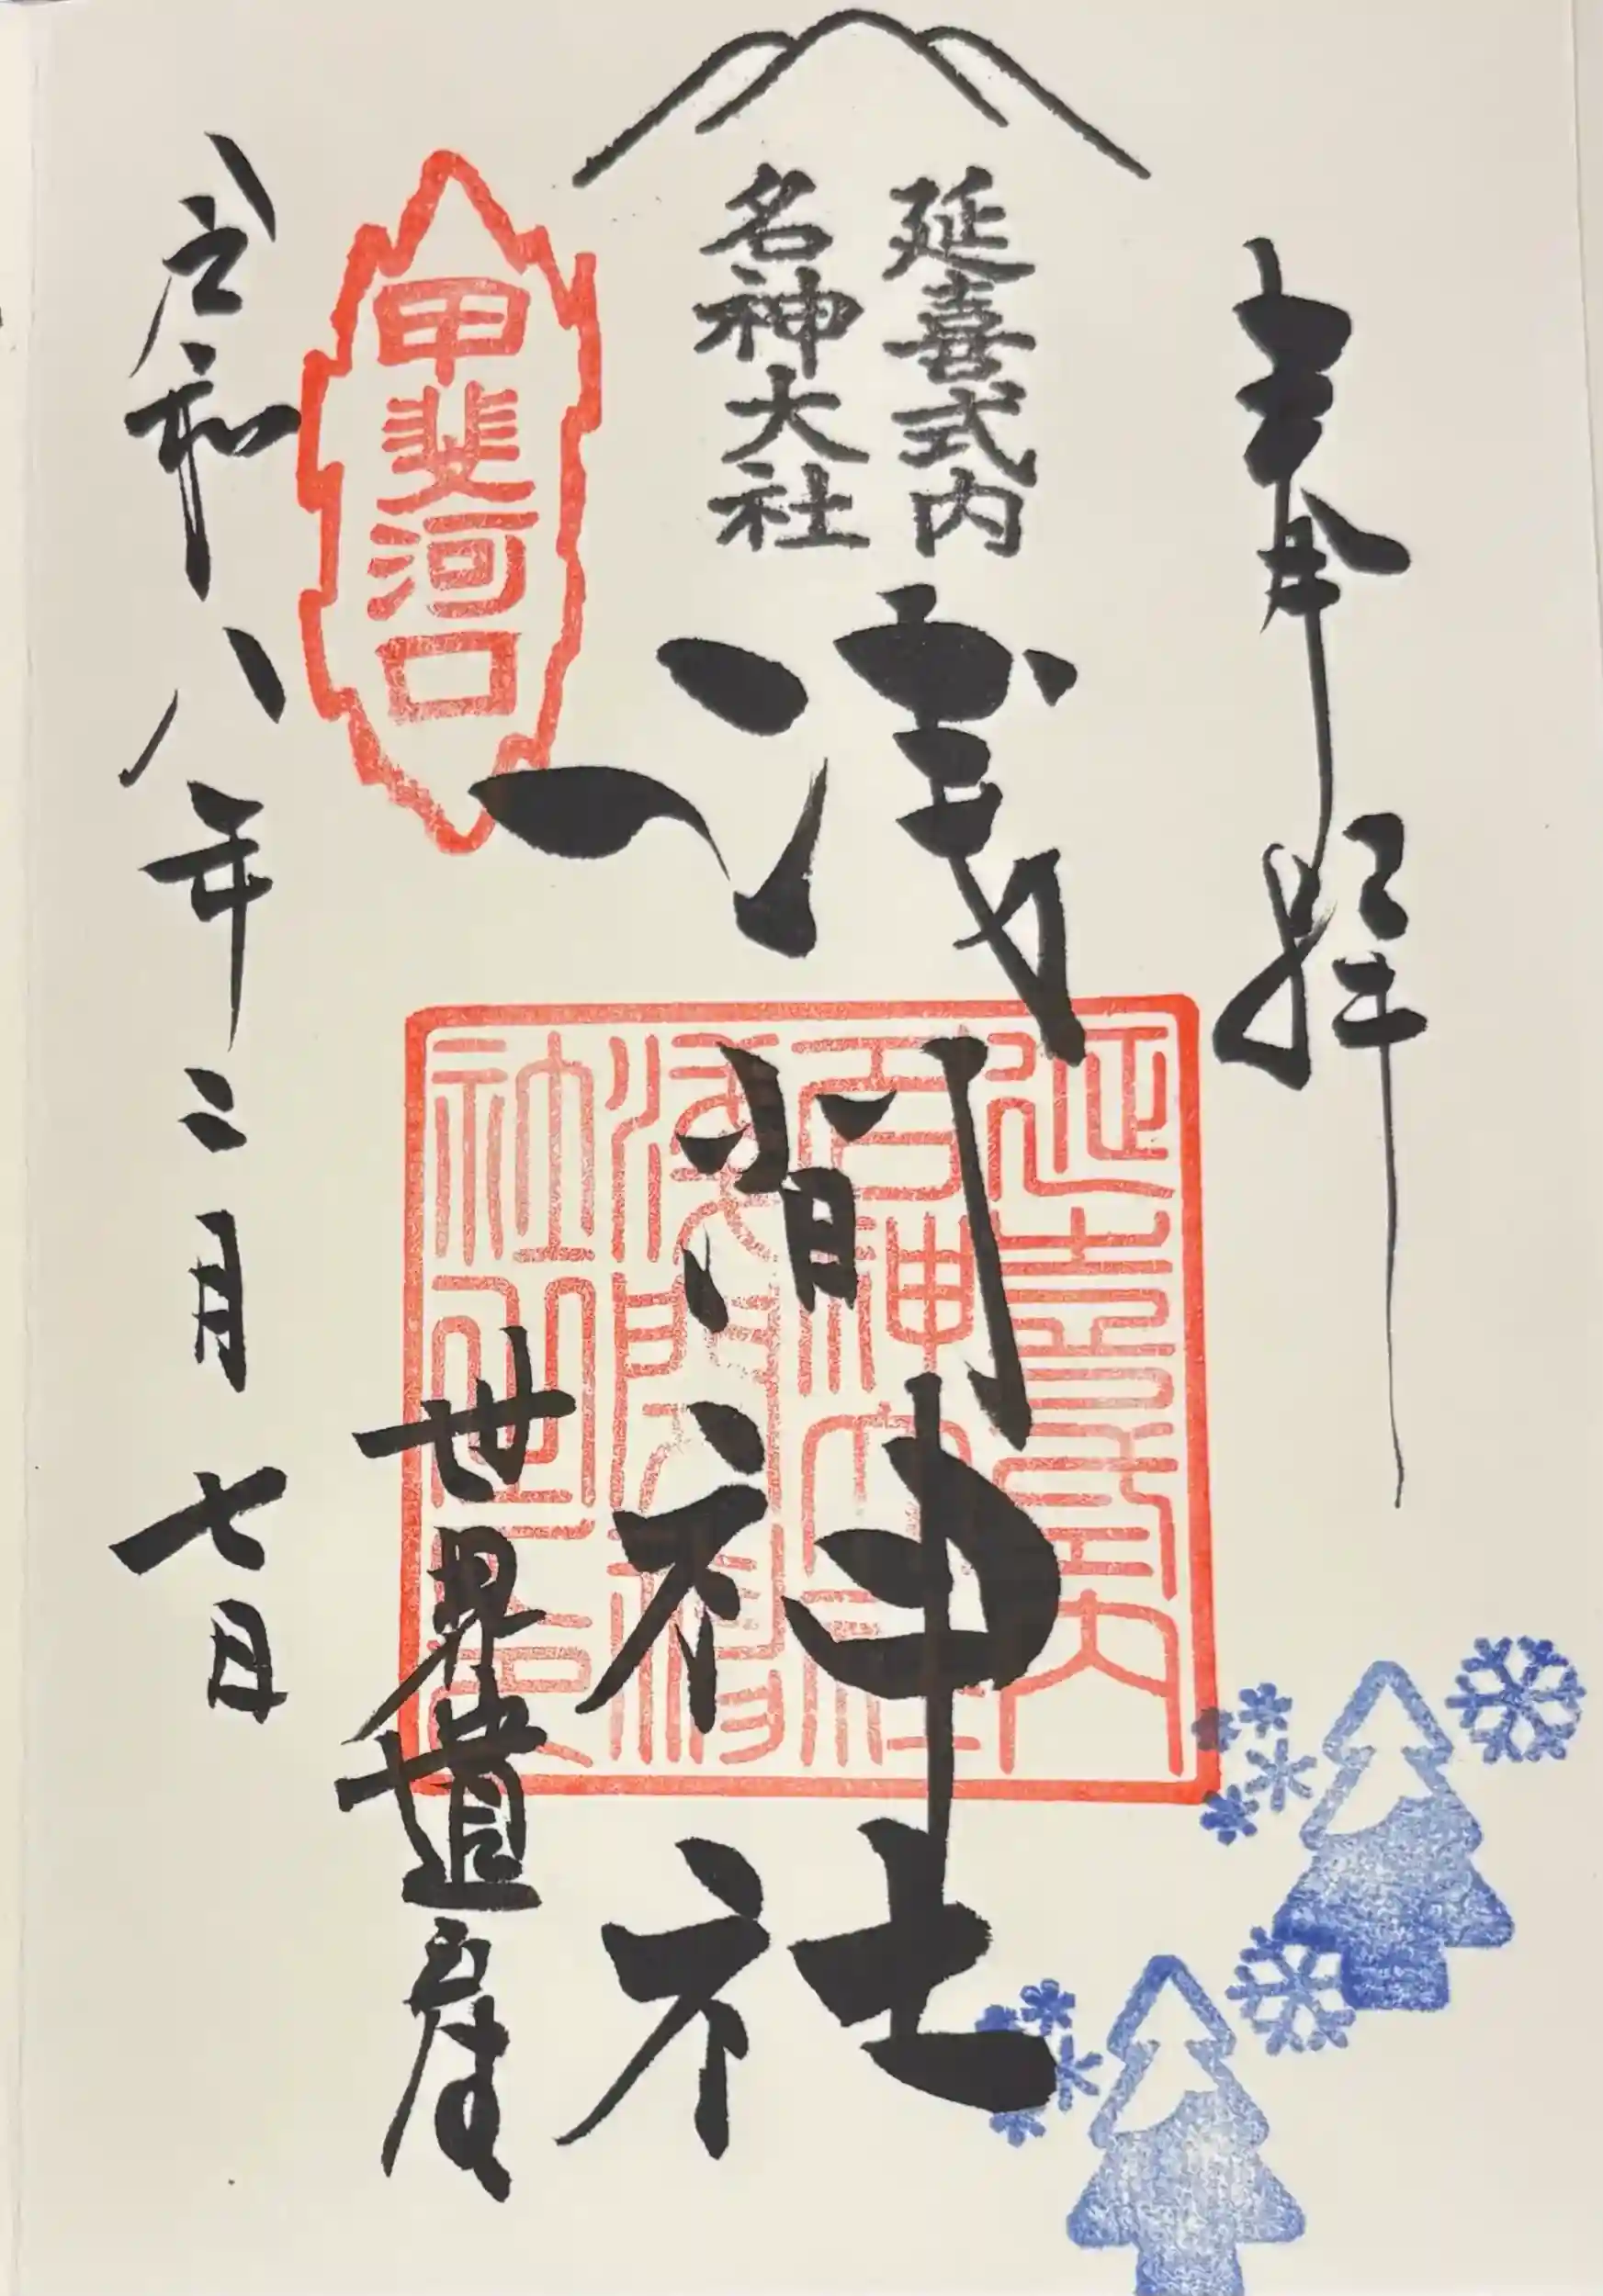 奉拝
延喜式内
名神大社
浅間神社
延喜式内
名神大社
浅間神社
世界遺産
甲斐河口
令和八年二月七日